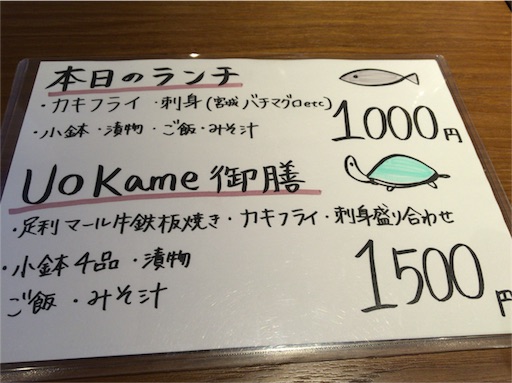 本日のランチ
・カキフライ ・刺身(宮城 バチマグロetc)
・小鉢・漬物・ご飯・みそ汁
1000円
Uo Kame 御膳
・足利マール牛鉄板焼き・カキフライ・刺身盛り合わせ
・小鉢4品・漬物
ご飯・みそ汁
1500円